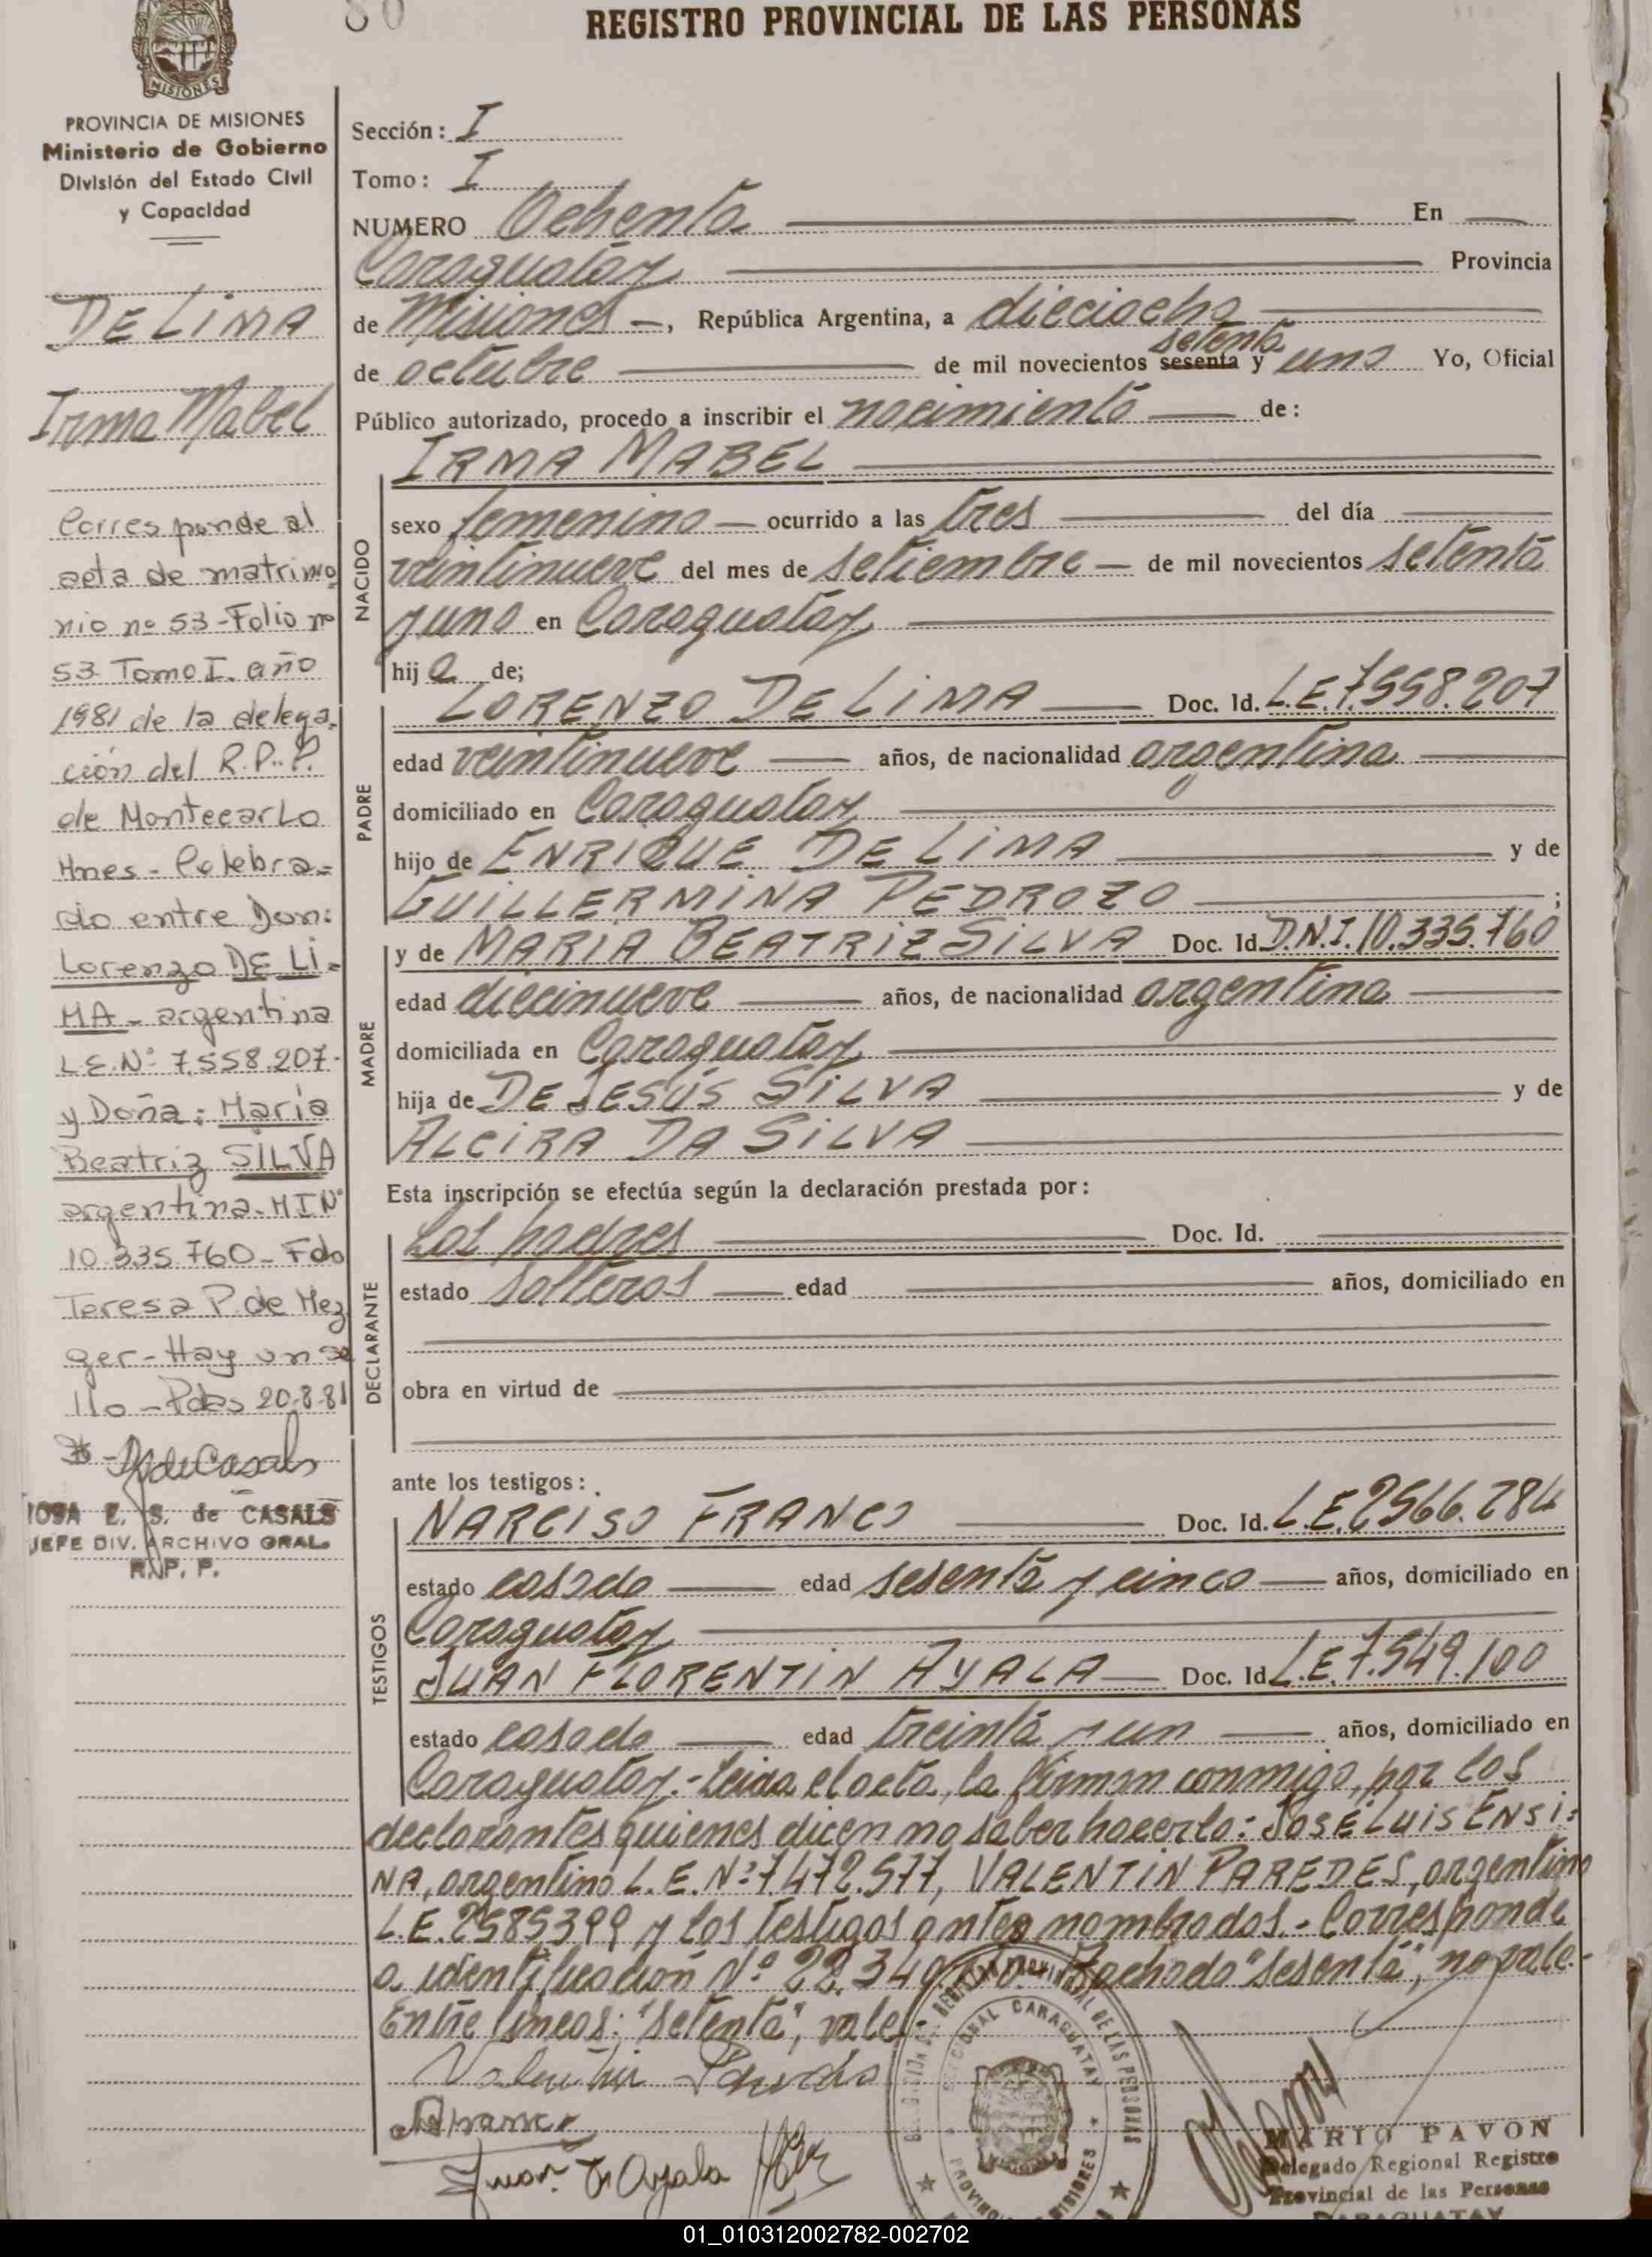 80
REGISTRO PROVINCIAL DE LAS PERSONAS
MISIONES
PROVINCIA DE MISIONES
Ministerio de Gobierno
División del Estado Civil
y Capacidad
DE LIMA
Irma Mabel
Corresponde al
acta de matrimo
nio nº 53-Folio nº
53 Tomo I. año
1981 de la delega-
ción del R.P.P.
de Montecarlo
Mnes - Celebra=
do entre Don:
Lorenzo DE LI=
MA - argentina
L.E.Nº 7.558.207.
y Doña: María
Beatriz SILVA
argentina. MIN°
10.335.760 - Fdo
Teresa P. de Mez
ger - Hay un se
llo - Pdas 20-8-81
E. S. de CASALS
JEFE DIV. ARCHIVO GRAL.
R.P.P.
Sección: I
Tomo: I
NUMERO Ochenta En
Caraguatay Provincia
de Misiones -, República Argentina, a dieciocho
setenta
de octubre de mil novecientos sesenta y uno Yo, Oficial
Público autorizado, procedo a inscribir el nacimiento de:
IRMA MABEL
NACIDO
sexo femenino - ocurrido a las tres del día
veintinueve del mes de setiembre - de mil novecientos setenta
y uno en Caraguatay
hija de;
PADRE
LORENZO DE LIMA Doc. Id. L.E.7.558.207
edad veintinueve años, de nacionalidad argentina
domiciliado en Caraguatay
hijo de ENRIQUE DE LIMA y de
GUILLERMINA PEDROZO ;
MADRE
y de MARIA BEATRIZ SILVA Doc. Id. D.N.I.10.335.760
edad diecinueve años, de nacionalidad argentina
domiciliada en Caraguatay
hija de DE JESÚS SILVA y de
ALCIRA DA SILVA
Esta inscripción se efectúa según la declaración prestada por:
DECLARANTE
Los padres Doc. Id.
estado solteros edad años, domiciliado en
obra en virtud de
ante los testigos:
TESTIGOS
NARCISO FRANCO Doc. Id. L.E.2566.284
estado casado edad sesenta y cinco años, domiciliado en
Caraguatay
JUAN FLORENTIN AYALA Doc. Id. L.E.7.549.100
estado casado edad treinta y un años, domiciliado en
Caraguatay.- Leida el acta, la firman conmigo, por los
declarantes quienes dicen no saber hacerlo: JOSÉ LUIS ENSI=
NA, argentino L.E. Nº 7.472.577, VALENTIN PAREDES, argentino
L.E. 2585399 y los testigos antes nombrados.- Corresponde
a identificación Nº 22.340 Tachado "sesenta", no vale.-
Entre líneas: "setenta", vale.-
Valentin Paredes
Juan F. Ayala
REGISTRO PROVINCIAL DE LAS PERSONAS
SECCIONAL CARAGUATAY
PROVINCIA MISIONES
MARIO PAVON
Delegado Regional Registro
Provincial de las Personas
CARAGUATAY
01_010312002782-002702